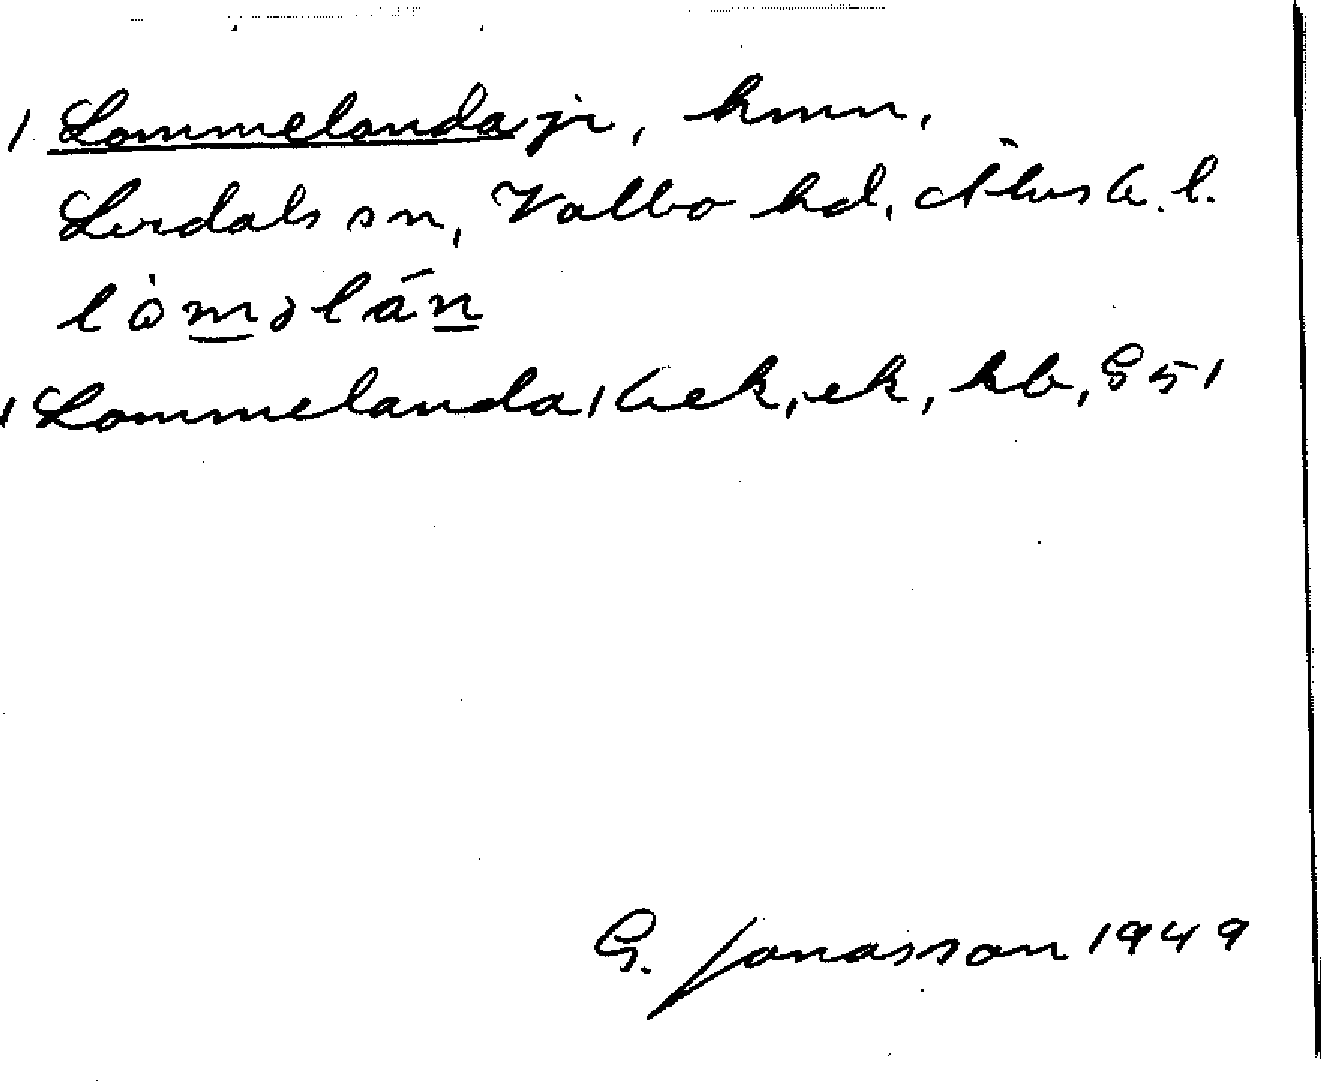 1 Lommelandajr, hmn,
Lerdals sn, Valbo hd, Älvsb. l.
lòməlán
1 Lommelanda, 1 bek, ek, hb, 851
G. Jonasson 1949